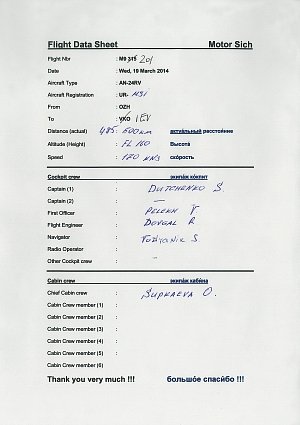 Flight Data Sheet Motor Sich
Flight Nbr : M9 315 201
Date : Wed, 19 March 2014
Aircraft Type : AN-24RV
Aircraft Registration : UR-MSI
From : OZH
To : VKO IEV
Distance (actual) : 485 600km актуа́льный расстояние
Altitude (Height) : FL 160 Высота́
Speed : 170 kNs ско́рость
Cockpit crew экипа́ж ко́кпит
Captain (1) : DUTCHENKO S.
Captain (2) : —
First Officer : PELEKH V.
Flight Engineer : DOVGAL R.
Navigator : S.
Radio Operator :
Other Cockpit crew :
Cabin crew экипа́ж каби́на
Chief Cabin crew : SUPKAEVA O.
Cabin Crew member (1) :
Cabin Crew member (2) :
Cabin Crew member (3) :
Cabin Crew member (4) :
Cabin Crew member (5) :
Cabin Crew member (6) :
Thank you very much !!! большо́е спаси́бо !!!